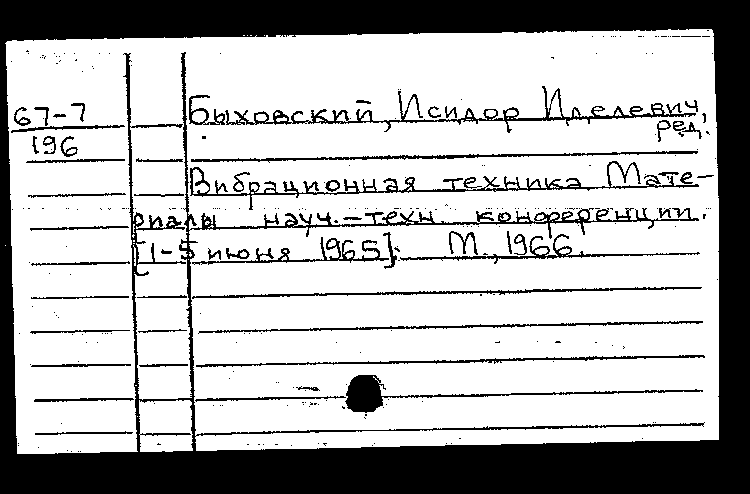 67-7
196
Быховский, Исидор Иделевич,
ред.
Вибрационная техника. Мате-
риалы науч.-техн. конференции.
[1-5 июня 1965]. М., 1966.